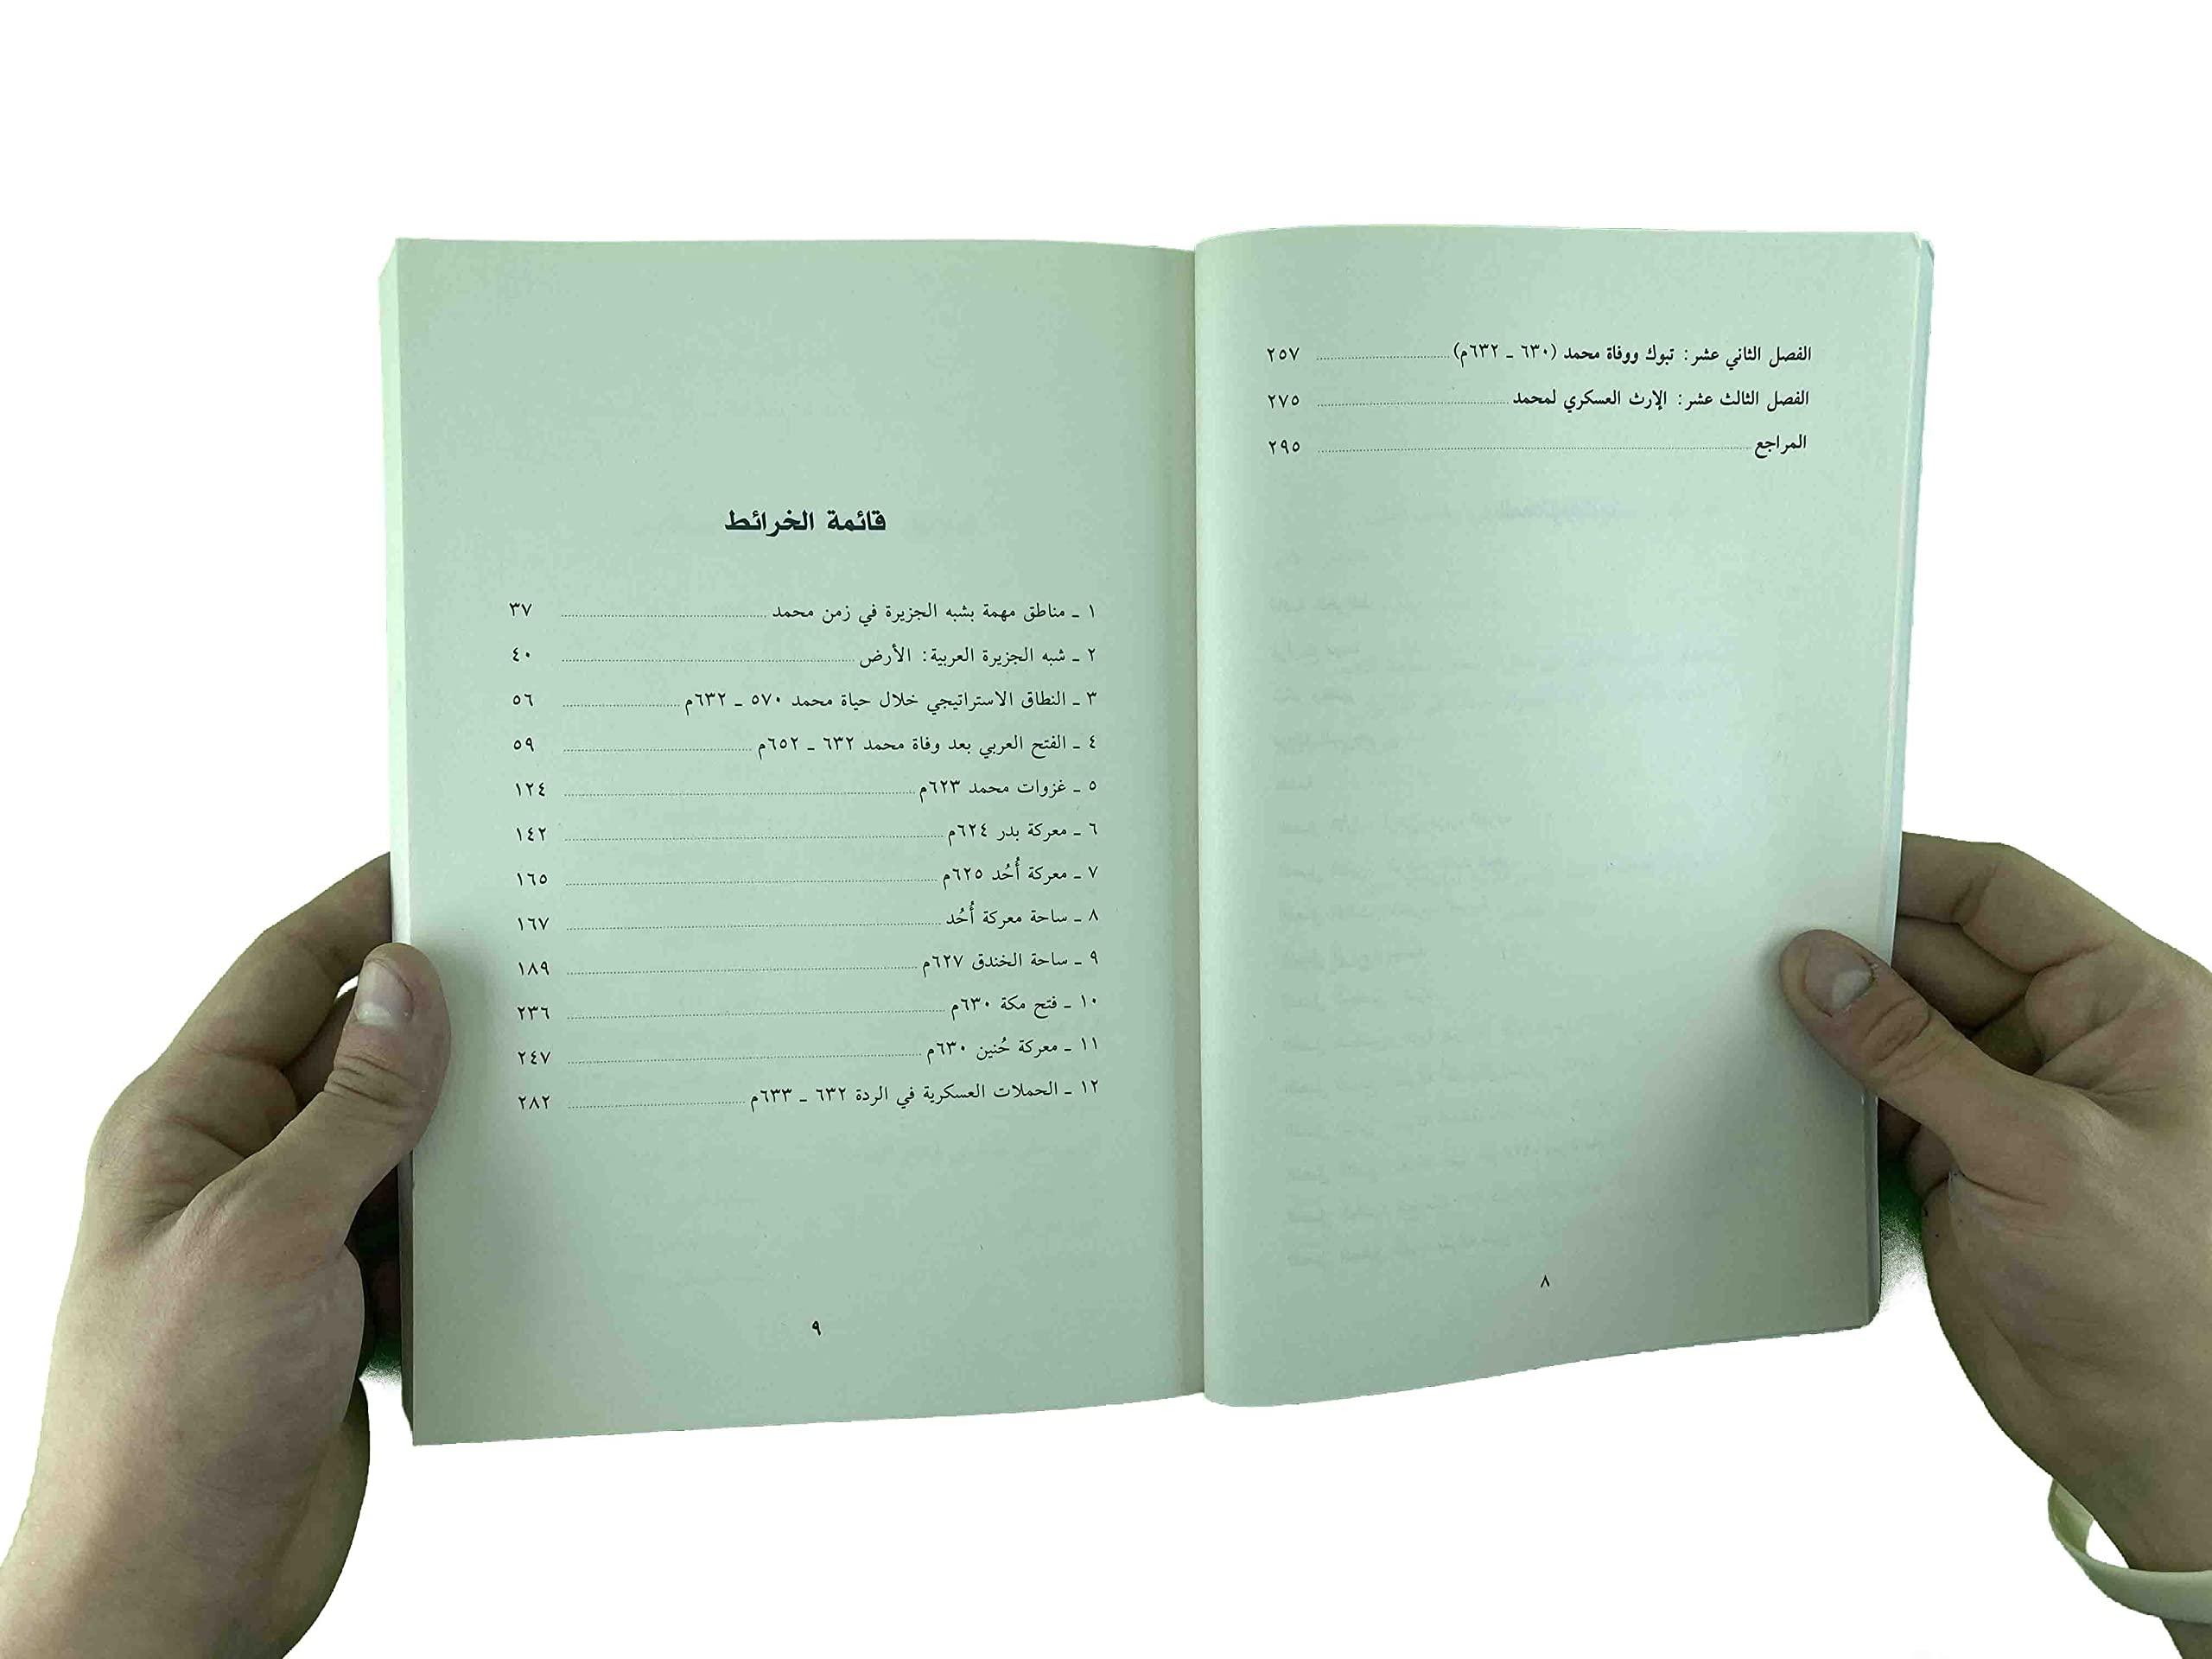 الفصل الثاني عشر: تبوك ووفاة محمد (٦٣٠ ـ ٦٣٢م) ........ ٢٥٧
الفصل الثالث عشر: الإرث العسكري لمحمد ........ ٢٧٥
المراجع ........ ٢٩٥
٨
قائمة الخرائط
١ ـ مناطق مهمة بشبه الجزيرة في زمن محمد ........ ٣٧
٢ ـ شبه الجزيرة العربية: الأرض ........ ٤٠
٣ ـ النطاق الاستراتيجي خلال حياة محمد ٥٧٠ ـ ٦٣٢م ........ ٥٦
٤ ـ الفتح العربي بعد وفاة محمد ٦٣٢ ـ ٦٥٢م ........ ٥٩
٥ ـ غزوات محمد ٦٢٣م ........ ١٢٤
٦ ـ معركة بدر ٦٢٤م ........ ١٤٢
٧ ـ معركة أُحُد ٦٢٥م ........ ١٦٥
٨ ـ ساحة معركة أُحُد ........ ١٦٧
٩ ـ ساحة الخندق ٦٢٧م ........ ١٨٩
١٠ ـ فتح مكة ٦٣٠م ........ ٢٣٦
١١ ـ معركة حُنين ٦٣٠م ........ ٢٤٧
١٢ ـ الحملات العسكرية في الردة ٦٣٢ ـ ٦٣٣م ........ ٢٨٢
٩